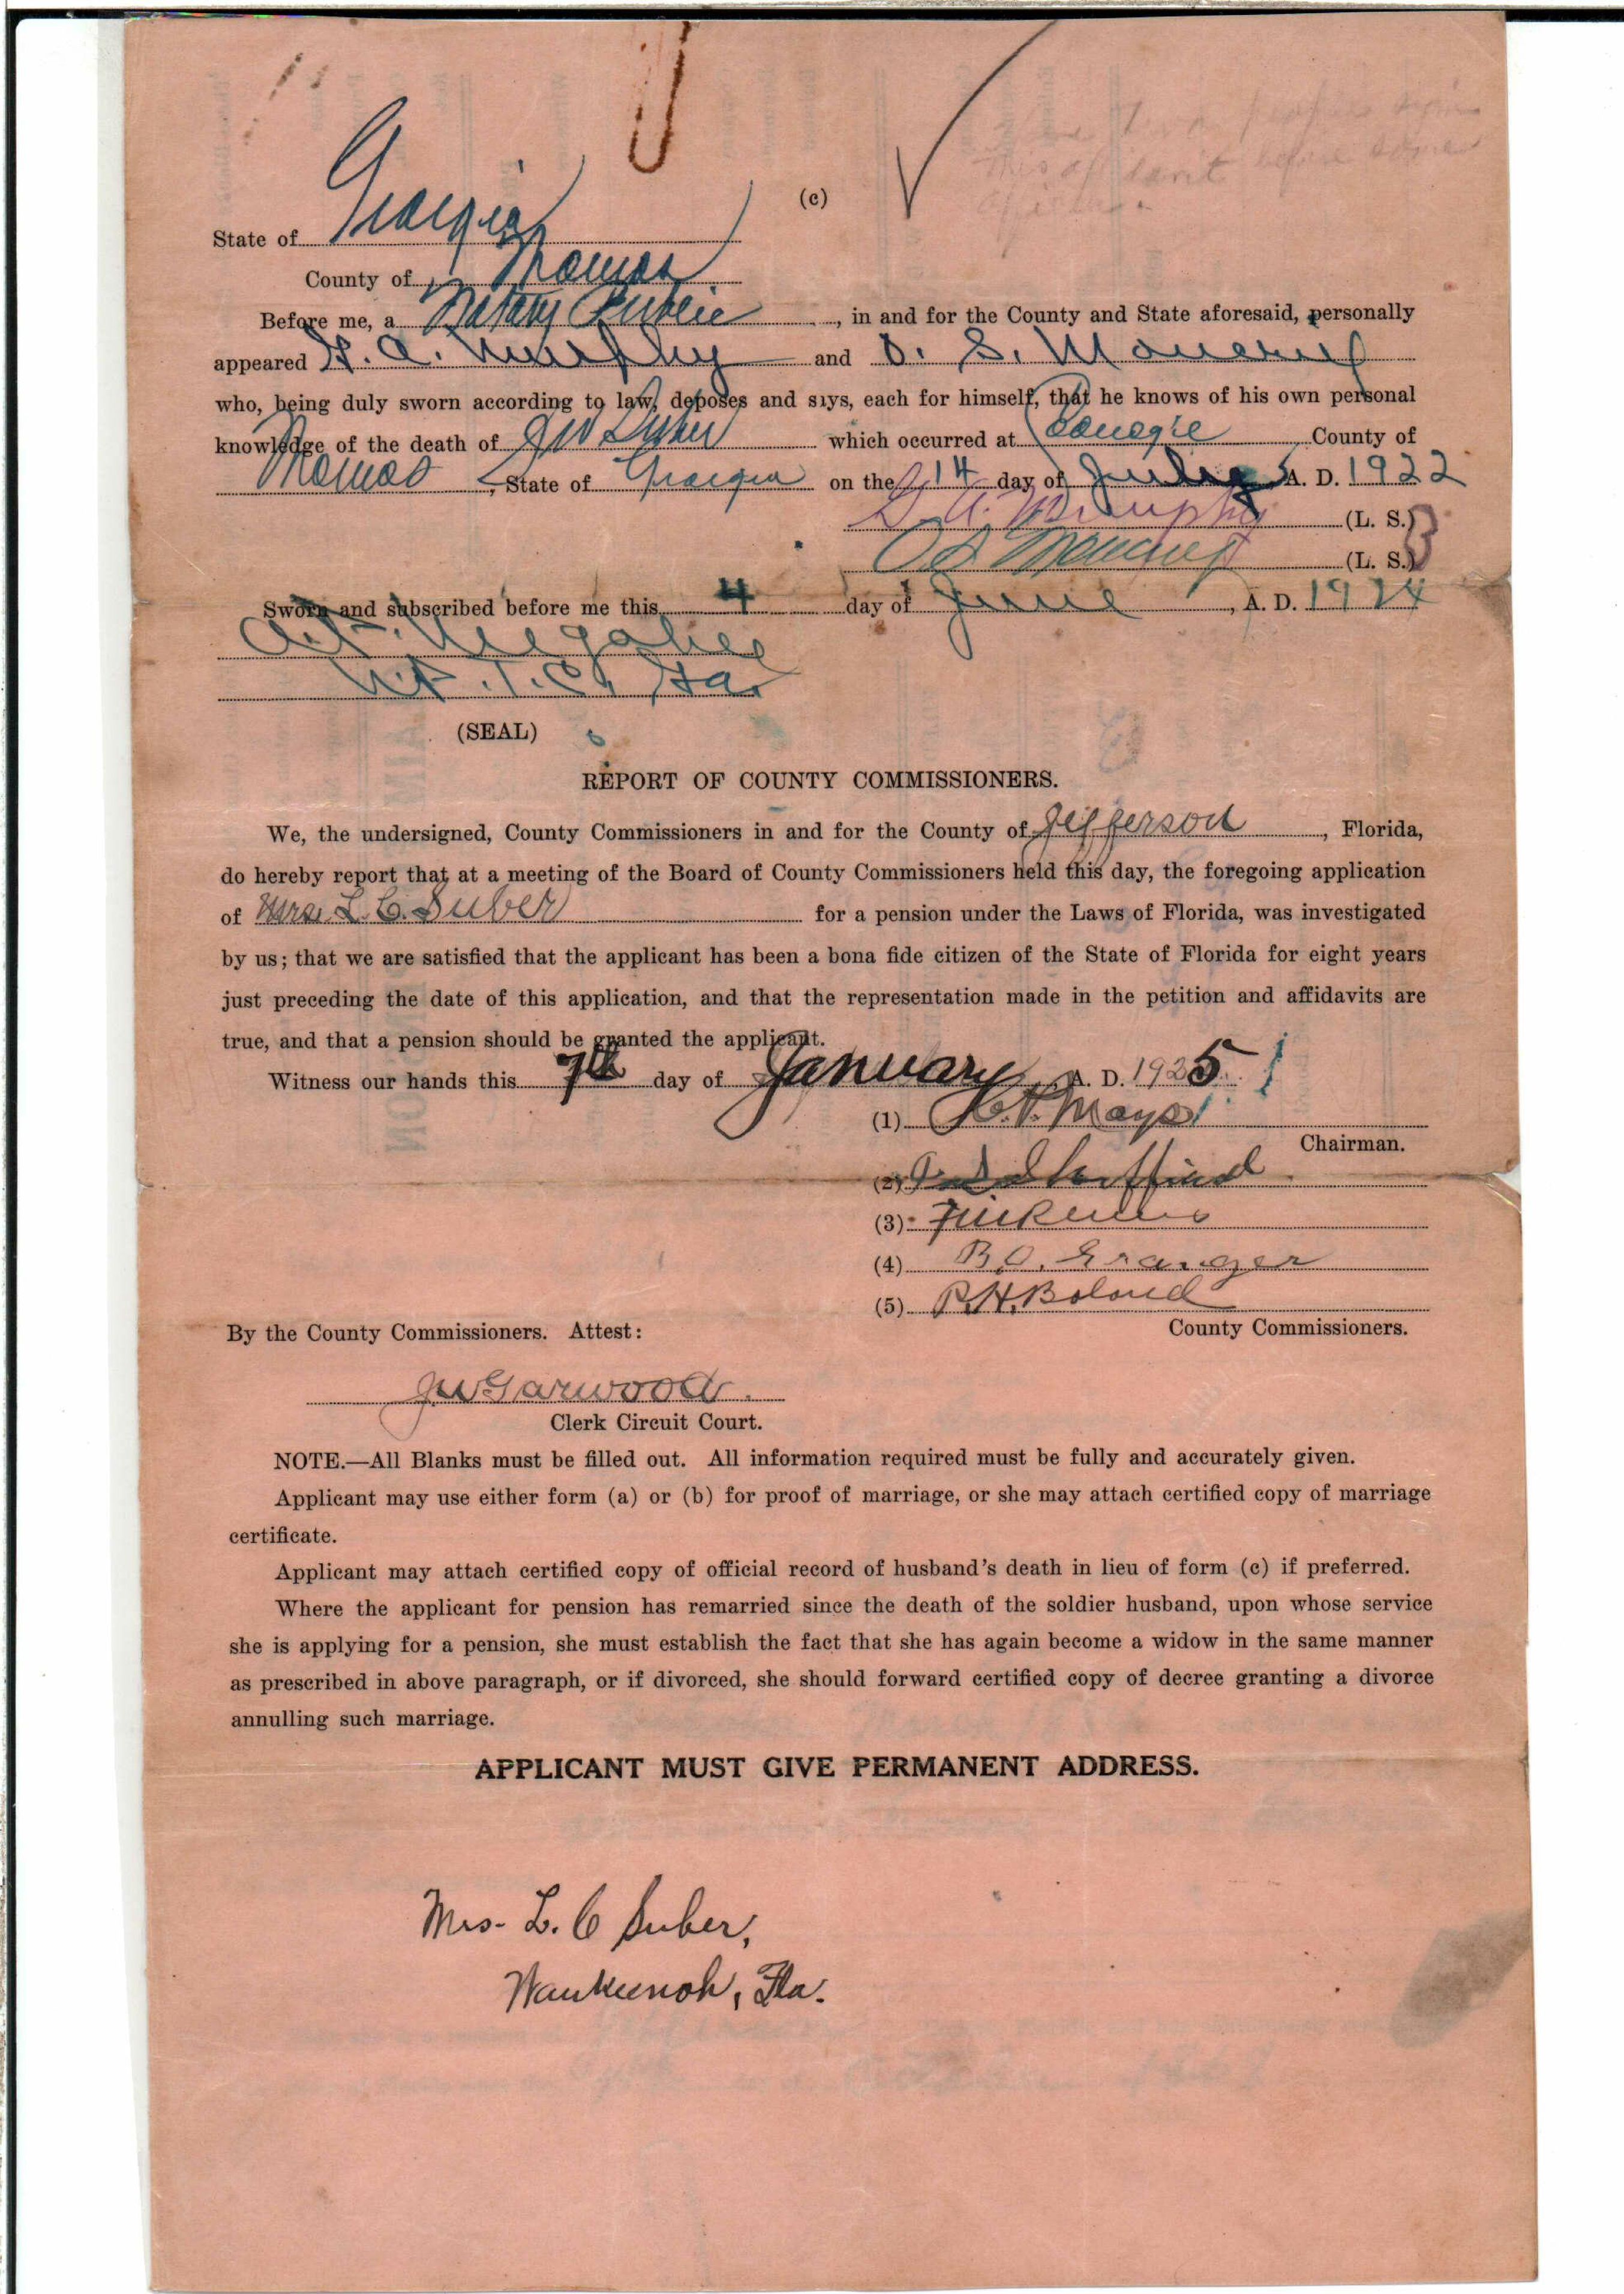 (c)
this affidavit before some
State of Georgia
County of Thomas
Before me, a Notary Public, in and for the County and State aforesaid, personally
appeared Murphy and O. S.
who, being duly sworn according to law, deposes and says, each for himself, that he knows of his own personal
knowledge of the death of Suber which occurred at County of
Thomas, State of Georgia on the 14 day of July A. D. 1922
Murphy (L. S.)
(L. S.)
Sworn and subscribed before me this 4 day of June, A. D. 1924
N.P. T. C. Ga.
(SEAL)
REPORT OF COUNTY COMMISSIONERS.
We, the undersigned, County Commissioners in and for the County of Jefferson, Florida,
do hereby report that at a meeting of the Board of County Commissioners held this day, the foregoing application
of Mrs. L. C. Suber for a pension under the Laws of Florida, was investigated
by us; that we are satisfied that the applicant has been a bona fide citizen of the State of Florida for eight years
just preceding the date of this application, and that the representation made in the petition and affidavits are
true, and that a pension should be granted the applicant.
Witness our hands this 7th day of January, A. D. 1925
(1) Mays
Chairman.
(2)
(3)
(4) B. O. Granger
(5) P. H. Boland
County Commissioners.
By the County Commissioners. Attest:
J W Garwood.
Clerk Circuit Court.
NOTE.—All Blanks must be filled out. All information required must be fully and accurately given.
Applicant may use either form (a) or (b) for proof of marriage, or she may attach certified copy of marriage
certificate.
Applicant may attach certified copy of official record of husband's death in lieu of form (c) if preferred.
Where the applicant for pension has remarried since the death of the soldier husband, upon whose service
she is applying for a pension, she must establish the fact that she has again become a widow in the same manner
as prescribed in above paragraph, or if divorced, she should forward certified copy of decree granting a divorce
annulling such marriage.
APPLICANT MUST GIVE PERMANENT ADDRESS.
Mrs. L. C Suber,
Waukeenah, Fla.